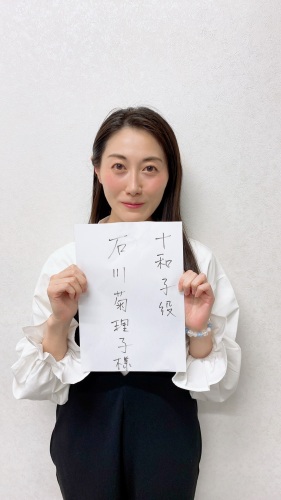 十和子役
石川菊理子様